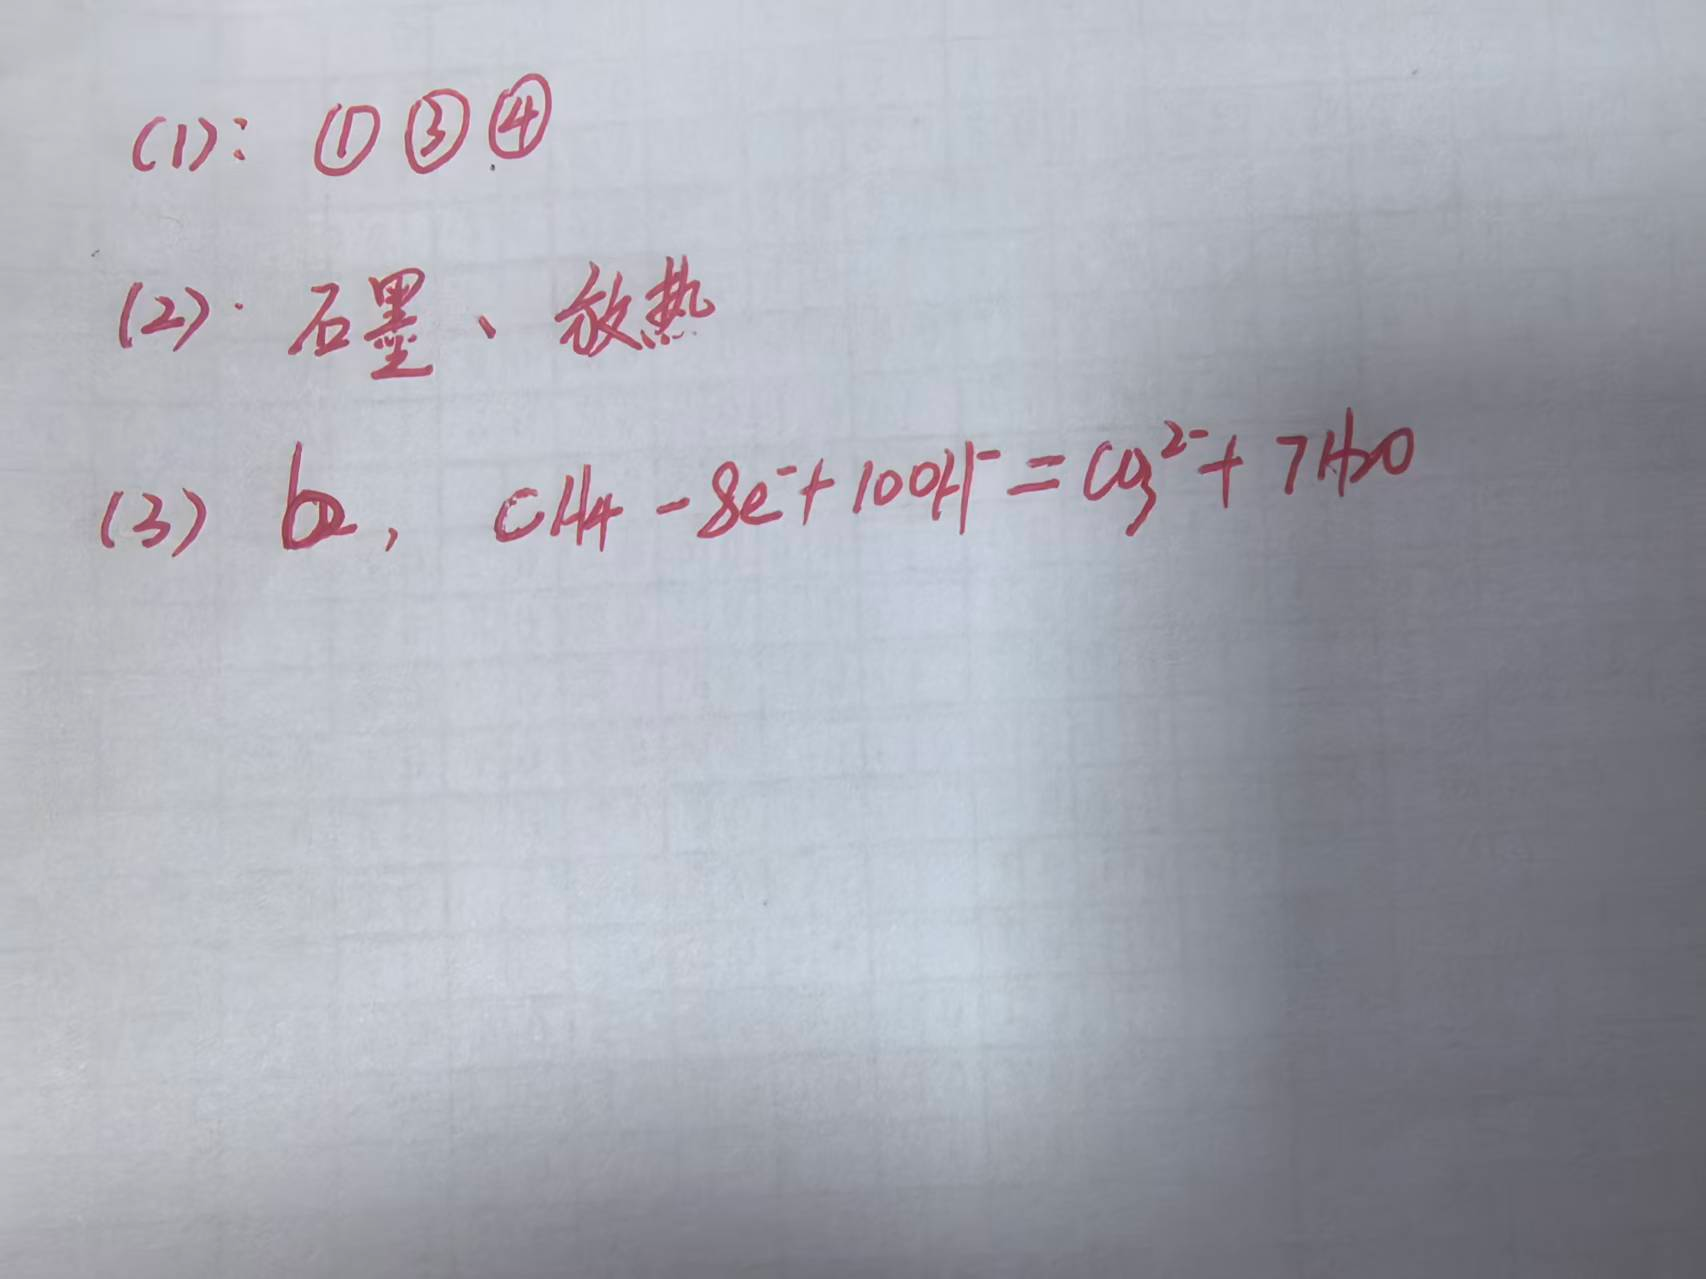 (1): ①③④
(2). 石墨、放热
(3) b, CH₄ - 8e⁻ + 10OH⁻ = CO₃²⁻ + 7H₂O